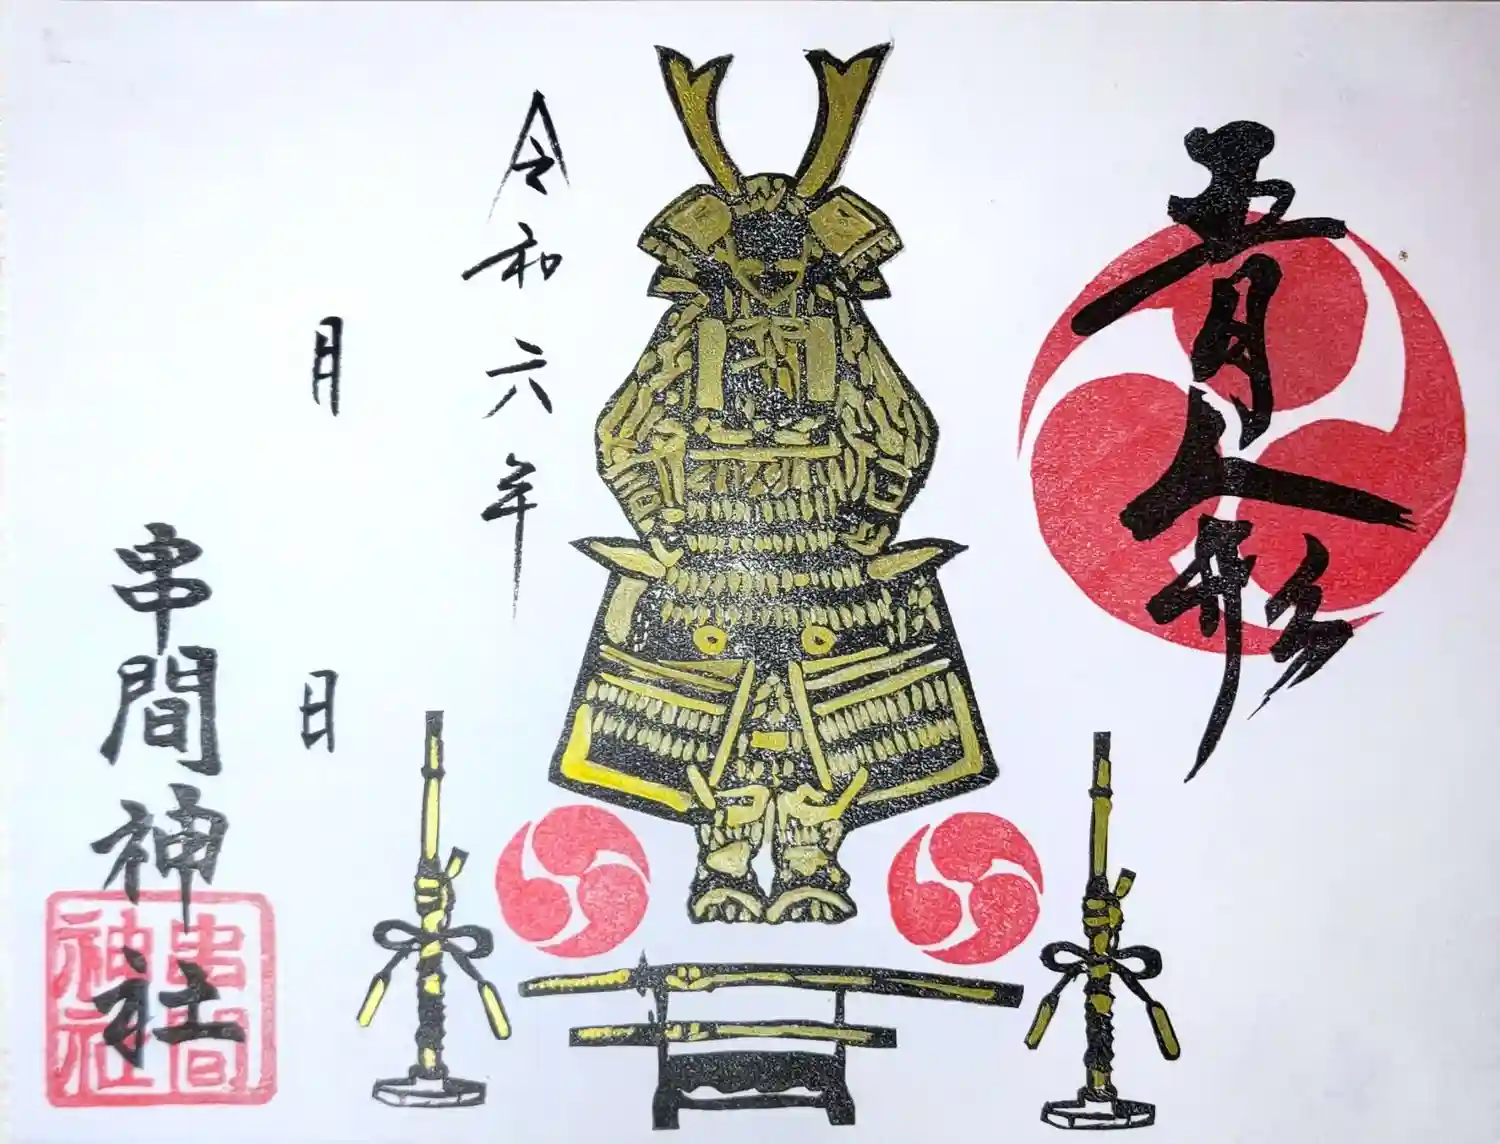 五月人形
令和六年
月
日
串間神社
串間
神社